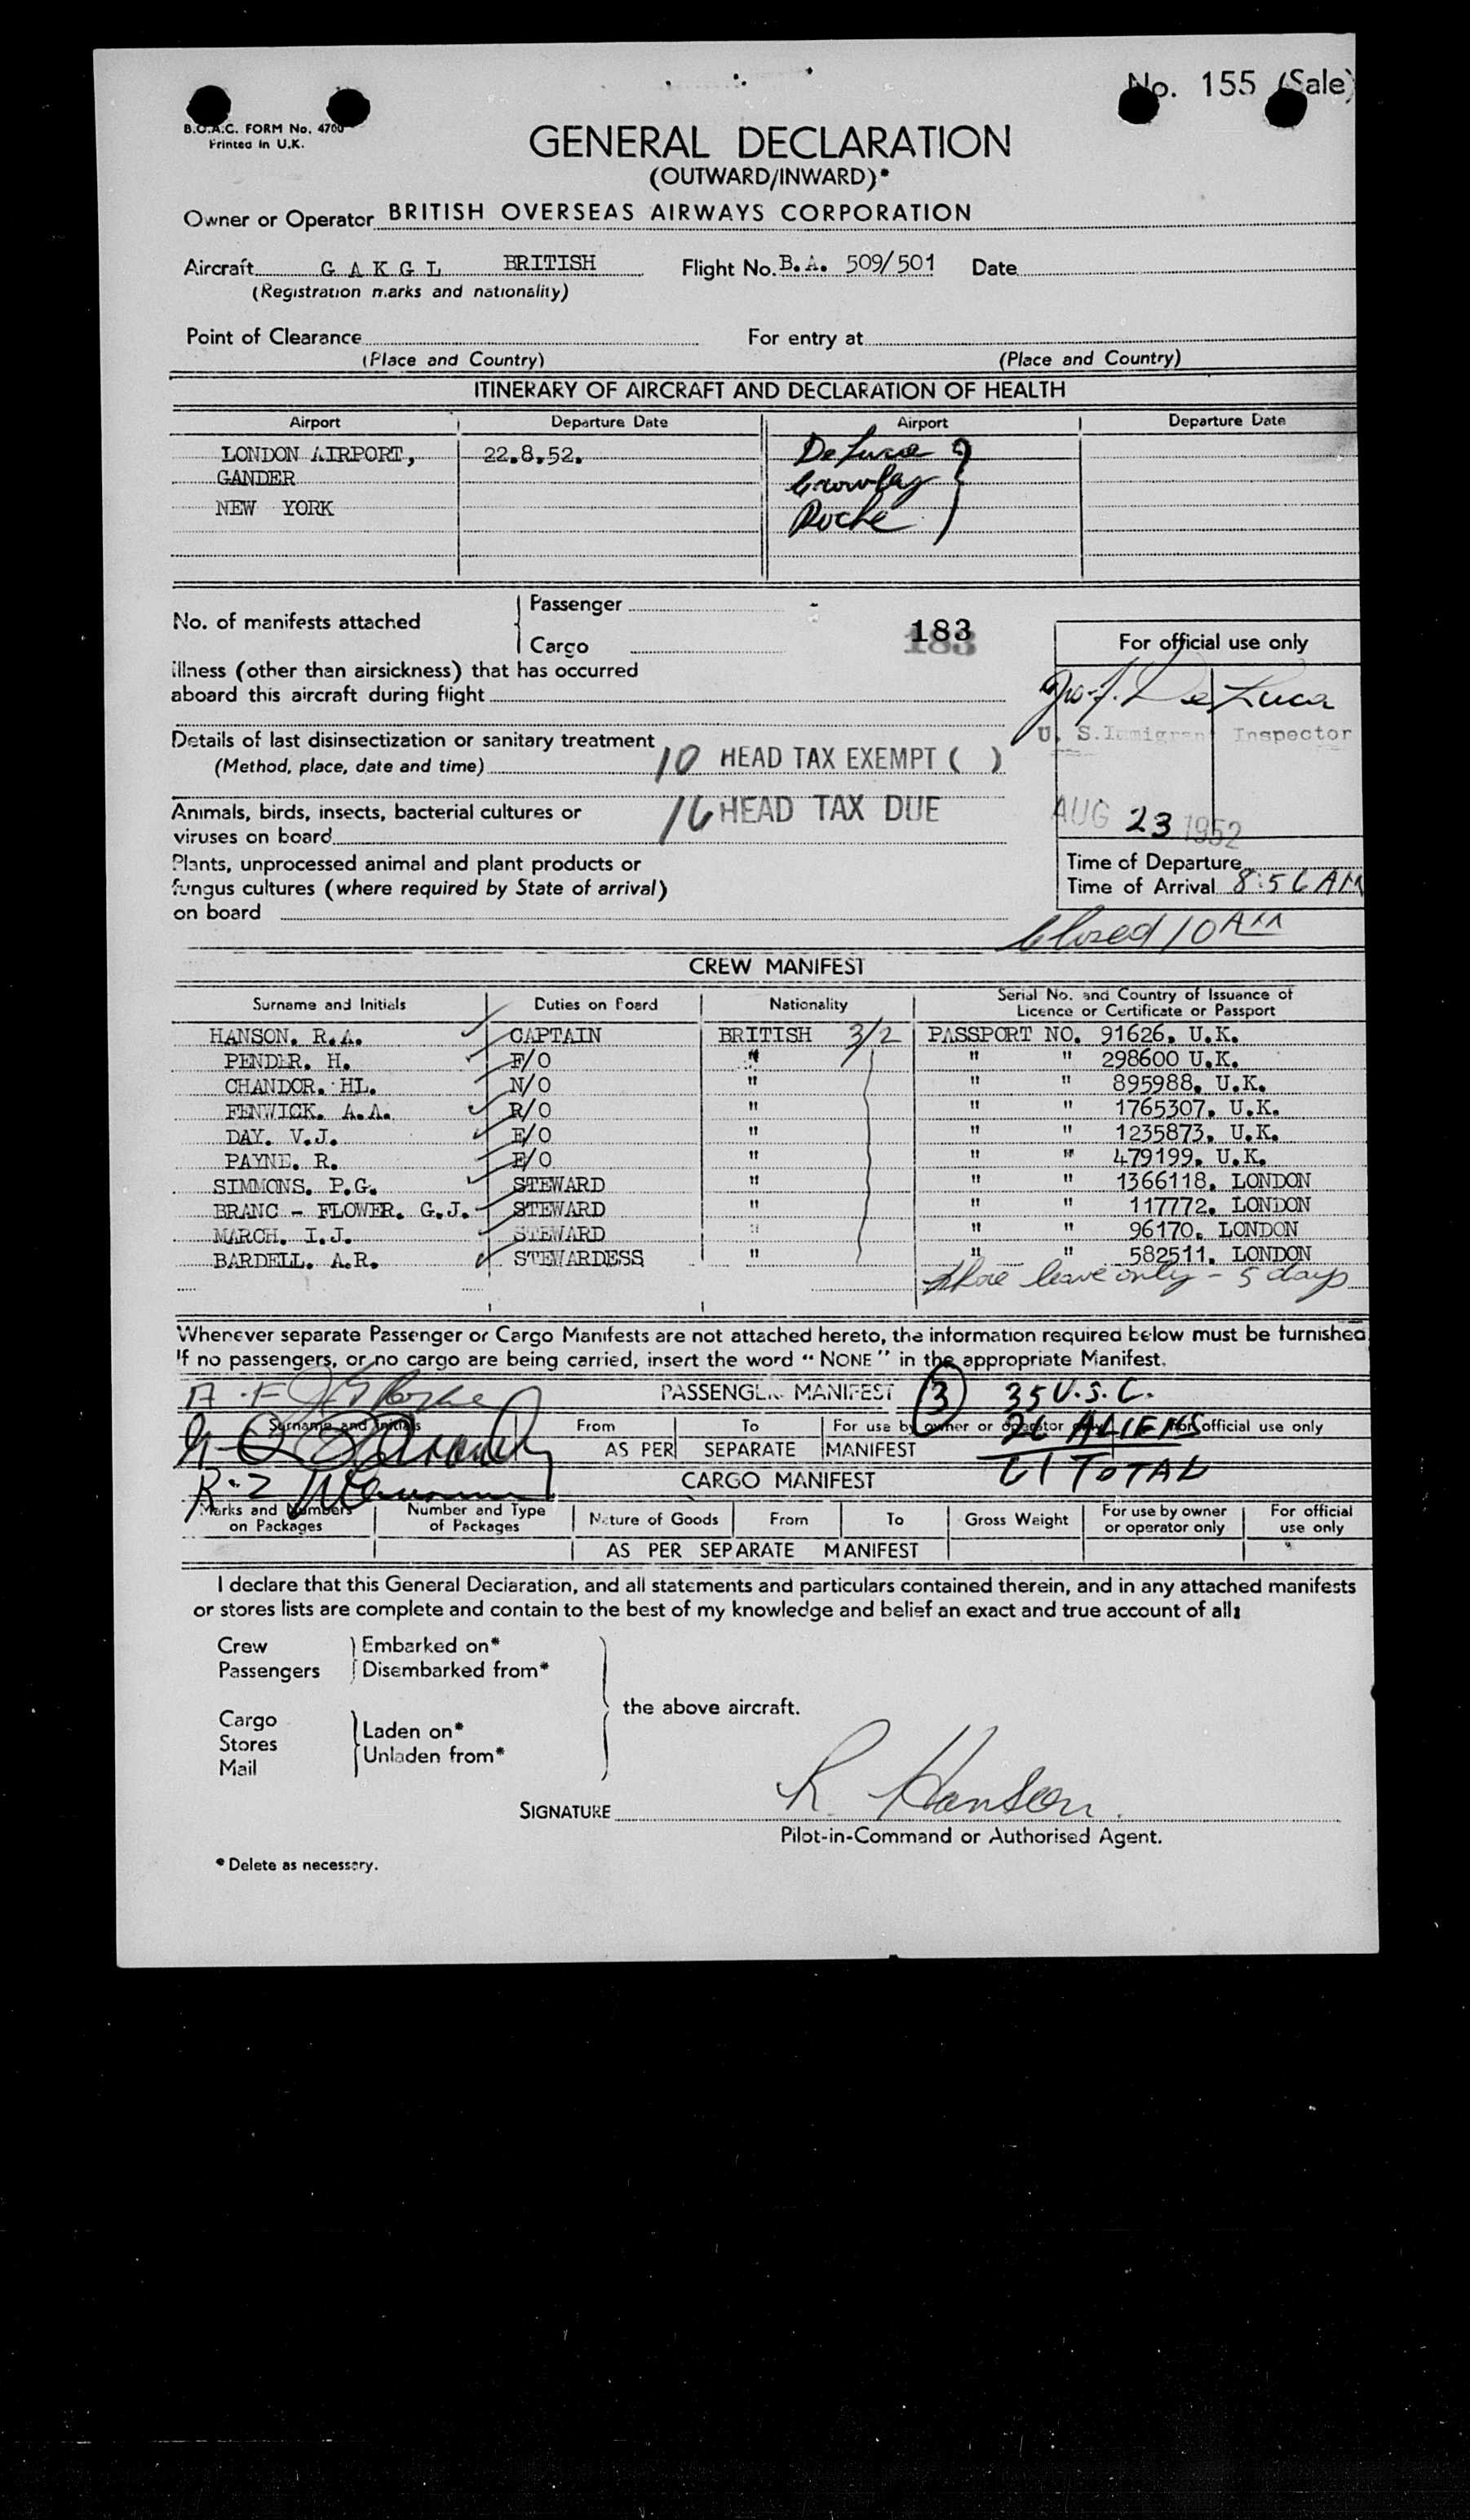 No. 155 (Sale)
B.O.A.C. FORM No. 4700
Printed in U.K.
GENERAL DECLARATION
(OUTWARD/INWARD)*
Owner or Operator BRITISH OVERSEAS AIRWAYS CORPORATION
Aircraft G A K G L BRITISH Flight No. B.A. 509/501 Date
(Registration marks and nationality)
Point of Clearance For entry at
(Place and Country) (Place and Country)
ITINERARY OF AIRCRAFT AND DECLARATION OF HEALTH
Airport Departure Date Airport Departure Date
LONDON AIRPORT, 22.8.52. De Luca
GANDER Crowley
NEW YORK Roche
No. of manifests attached Passenger -
Cargo 183
For official use only
Illness (other than airsickness) that has occurred
aboard this aircraft during flight
De Luca
U. S. Immigrant Inspector
Details of last disinsectization or sanitary treatment
(Method, place, date and time) 10 HEAD TAX EXEMPT ( )
Animals, birds, insects, bacterial cultures or
viruses on board 16 HEAD TAX DUE
AUG 23 1952
Plants, unprocessed animal and plant products or
fungus cultures (where required by State of arrival)
on board
Time of Departure
Time of Arrival 8:56 AM
Closed 10 AM
CREW MANIFEST
Surname and Initials Duties on Board Nationality Serial No. and Country of Issuance of
Licence or Certificate or Passport
HANSON. R.A. CAPTAIN BRITISH 3/2 PASSPORT NO. 91626. U.K.
PENDER. H. F/O " " " 298600 U.K.
CHANDOR. HL. N/O " " " 895988. U.K.
FENWICK. A.A. R/O " " " 1765307. U.K.
DAY. V.J. E/O " " " 1235873. U.K.
PAYNE. R. E/O " " " 479199. U.K.
SIMMONS. P.G. STEWARD " " " 1366118. LONDON
BRANC - FLOWER. G.J. STEWARD " " " 117772. LONDON
MARCH. I.J. STEWARD " " " 96170. LONDON
BARDELL. A.R. STEWARDESS " " " 582511. LONDON
Shore leave only - 5 days
Whenever separate Passenger or Cargo Manifests are not attached hereto, the information required below must be furnished
If no passengers, or no cargo are being carried, insert the word "NONE" in the appropriate Manifest.
A-F PASSENGER MANIFEST 3 35 U.S.C.
Surname and Initials From To For use by owner or operator only For official use only
26 ALIENS
G-Q AS PER SEPARATE MANIFEST
61 TOTAL
R-Z CARGO MANIFEST
Marks and Numbers on Packages Number and Type of Packages Nature of Goods From To Gross Weight For use by owner or operator only For official use only
AS PER SEPARATE MANIFEST
I declare that this General Declaration, and all statements and particulars contained therein, and in any attached manifests
or stores lists are complete and contain to the best of my knowledge and belief an exact and true account of all:
Crew Embarked on*
Passengers Disembarked from*
the above aircraft.
Cargo
Stores Laden on*
Mail Unladen from*
SIGNATURE R. Hanson.
Pilot-in-Command or Authorised Agent.
* Delete as necessary.